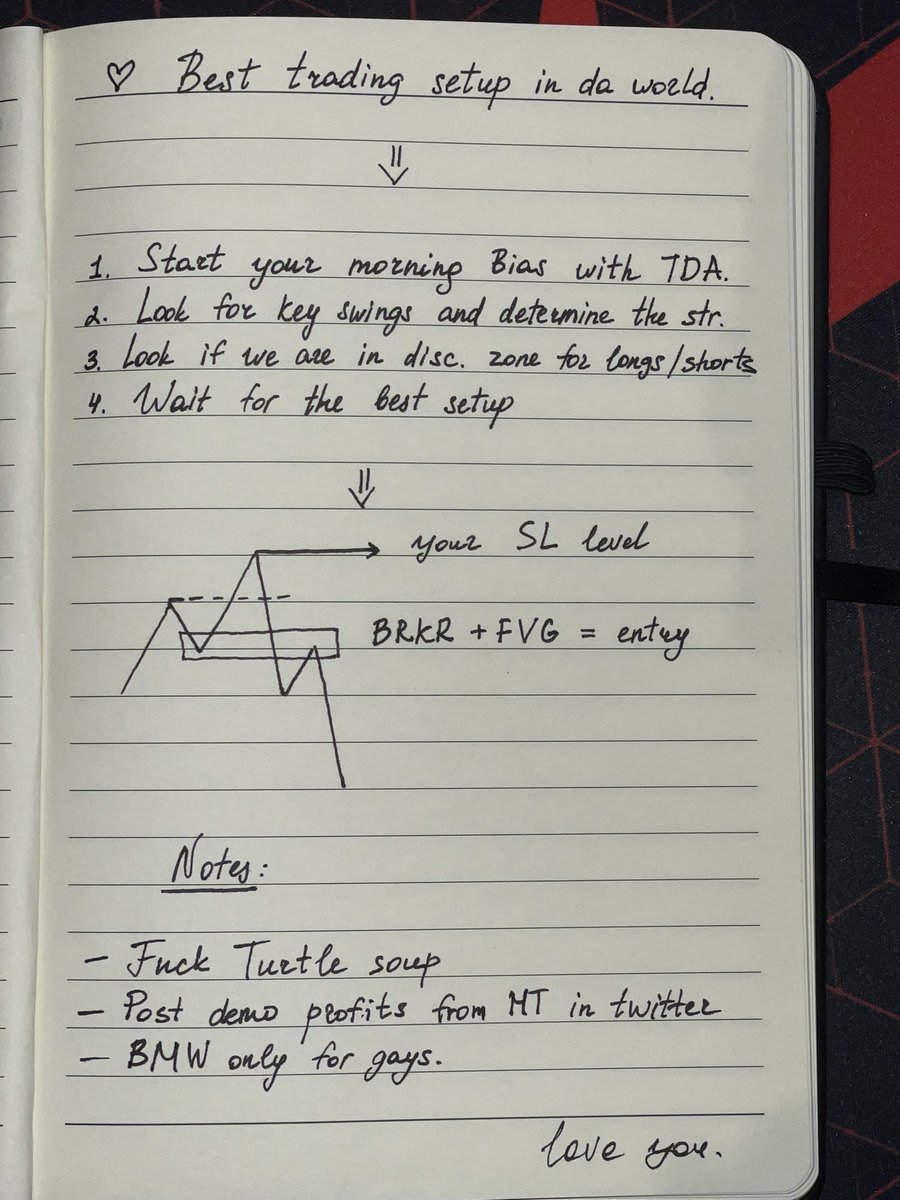 ♡ Best trading setup in da world.
⇓
1. Start your morning Bias with TDA.
2. Look for key swings and determine the str.
3. Look if we are in disc. zone for longs/shorts
4. Wait for the best setup
⇓
your SL level
BRKR + FVG = entry
Notes:
- Fuck Turtle soup
- Post demo profits from MT in twitter
- BMW only for gays.
love you.